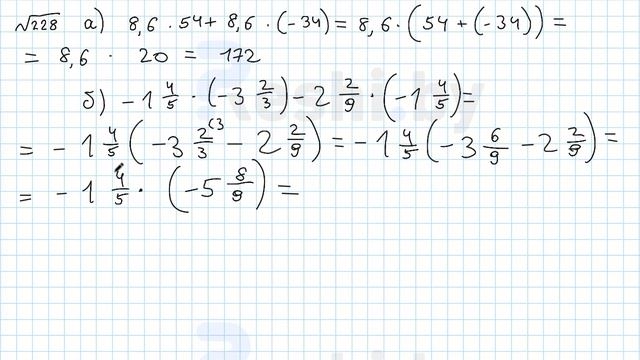 √228 а) 8,6 · 54 + 8,6 · (-34) = 8,6 · (54 + (-34)) =
= 8,6 · 20 = 172
б) -1 4/5 · (-3 2/3) - 2 2/9 · (-1 4/5) =
= -1 4/5 (-3 2/3 (3 - 2 2/9) = -1 4/5 (-3 6/9 - 2 2/9) =
= -1 4/5 · (-5 8/9) =